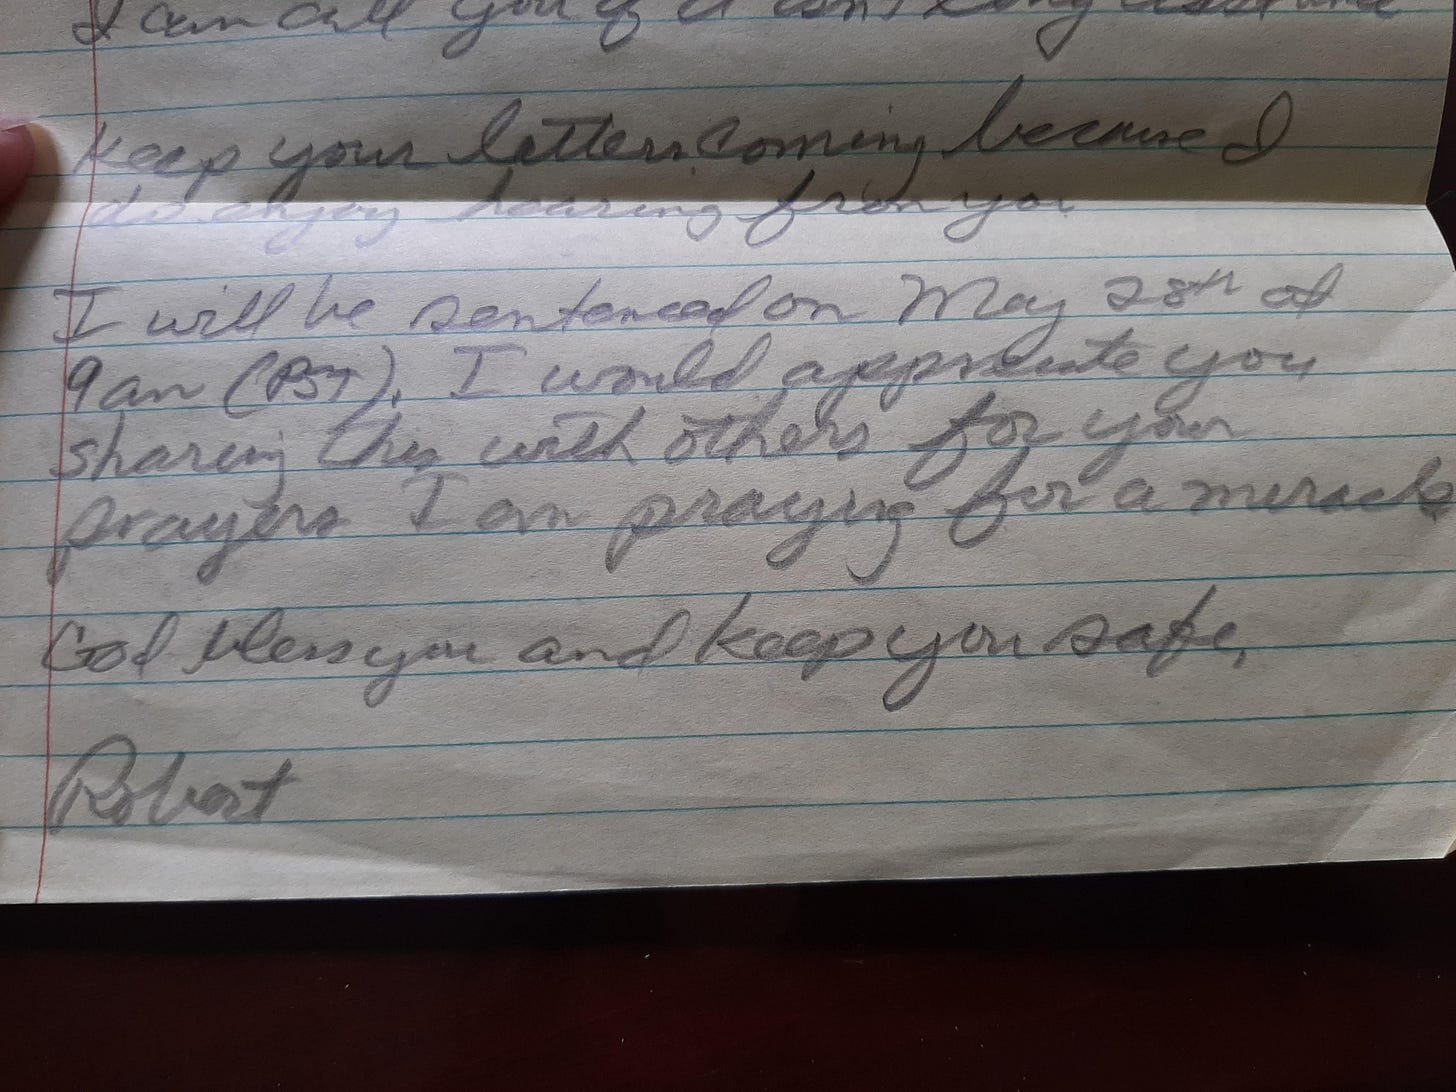 I can call you if it isn't long
Keep your letters coming because I
do enjoy hearing from you
I will be sentenced on May 28th at
9am (PST). I would appreciate you
sharing this with others for your
prayers I am praying for a miracle
God bless you and keep you safe,
Robert